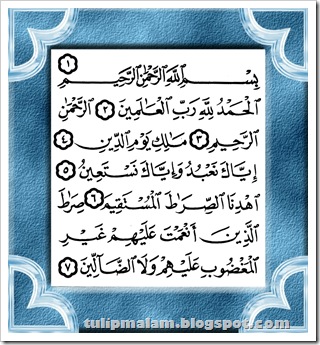 بِسْمِ ٱللَّهِ ٱلرَّحْمَٰنِ ٱلرَّحِيمِ ١
ٱلْحَمْدُ لِلَّهِ رَبِّ ٱلْعَالَمِينَ ٢ ٱلرَّحْمَٰنِ
ٱلرَّحِيمِ ٣ مَالِكِ يَوْمِ ٱلدِّينِ ٤
إِيَّاكَ نَعْبُدُ وَإِيَّاكَ نَسْتَعِينُ ٥
ٱهْدِنَا ٱلصِّرَاطَ ٱلْمُسْتَقِيمَ ٦ صِرَاطَ
ٱلَّذِينَ أَنْعَمْتَ عَلَيْهِمْ غَيْرِ
ٱلْمَغْضُوبِ عَلَيْهِمْ وَلَا ٱلضَّالِّينَ ٧
tulipmalam.blogspot.com